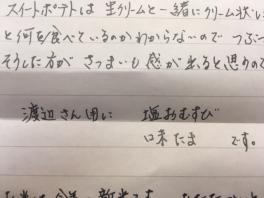 スイートポテトは 生クリームと一緒にクリーム状に
と何を食べているのかわからないので つぶつ
そうした方が さつまいも感が出ると思うので
渡辺さん用に 塩おむすび
口味たま です。